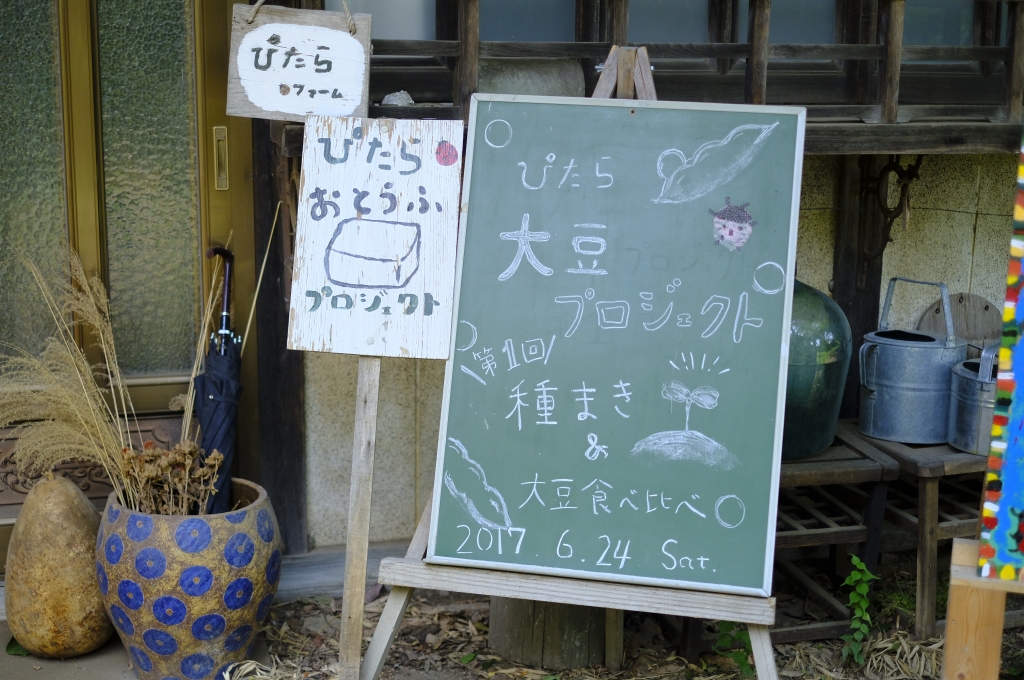 ぴたら
ファーム
ぴたら
おとうふ
プロジェクト
ぴたら
大豆
プロジェクト
第1回
種まき
&
大豆食べ比べ
2017.6.24 Sat.